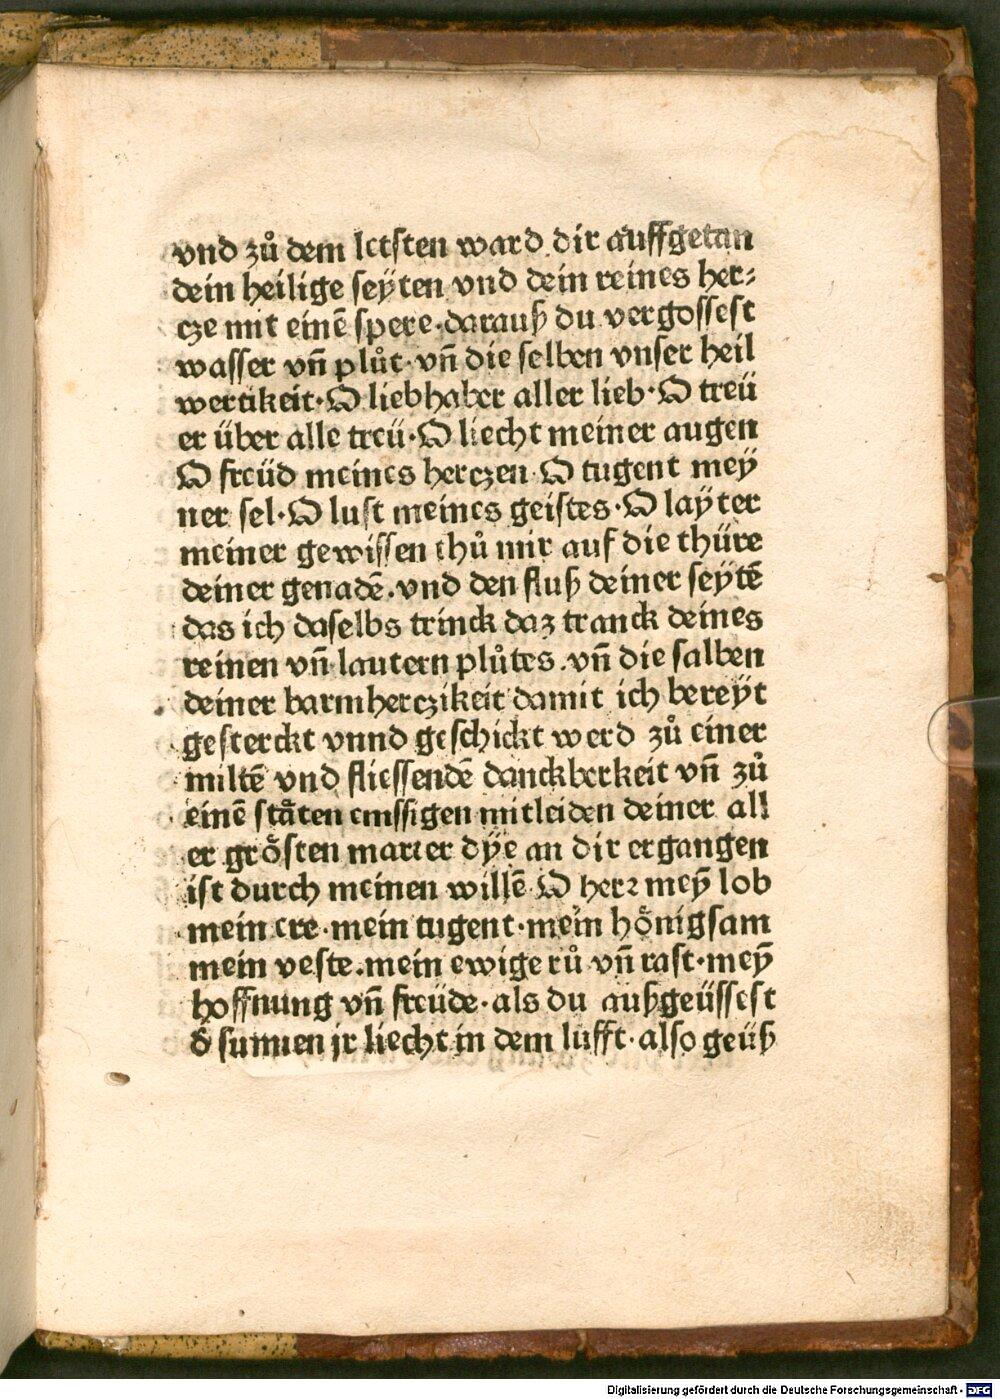 vnd zů dem letsten ward dir auffgetan
dein heilige seÿten vnd dein reines her⸗
cze mit einē spere·darauß du vergossest
wasser vñ plůt·vñ die selben vnser heil
wertikeit·O liebhaber aller lieb·O treü
er über alle treü·O liecht meiner augen
O freüd meines herczen·O tugent meÿ
ner sel·O lust meines geistes·O laÿter
meiner gewissen thů mir auf die thüre
deiner genadē.vnd den fluß deiner seÿtē
das ich daselbs trinck daz tranck deines
reinen vñ lautern plůtes.vñ die salben
deiner barmherczikeit damit ich bereÿt
gesterckt vnnd geschickt werd zů einer
miltē vnd fliessendē danckberkeit vñ zů
einē stäten emssigen mitleiden deiner all
er grösten marter dÿe an dir ergangen
ist durch meinen willē·O herꝛ meÿ̄ lob
mein ere·mein tugent·mein hönigsam
mein veste.mein ewige rů vñ rast·meÿ̄
hoffnung vñ freüde·als du außgeüssest
d̄ sunnen jr liecht in dem lufft·also geüß
Digitalisierung gefördert durch die Deutsche Forschungsgemeinschaft - DFG